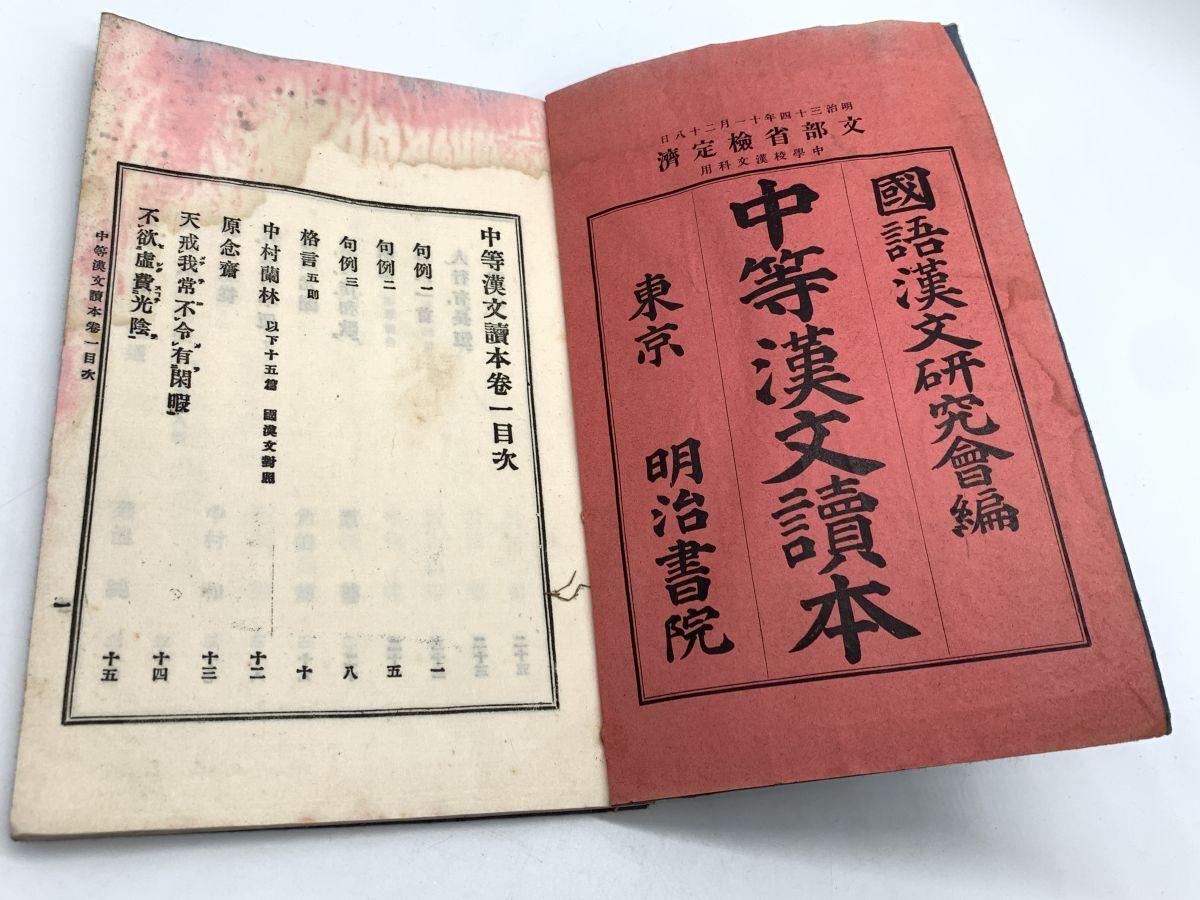 明治三十四年十一月二十八日
文部省檢定濟
中學校漢文科用
國語漢文研究會編
中等漢文讀本
東京 明治書院
中等漢文讀本卷一目次
句例一 一
句例二 五
句例三 八
格言 五則 十
中村蘭林 以下十五篇 國漢文對照 十二
原念齋 十三
天戒我常不令有閑暇 十四
不欲虛費光陰 十五
中等漢文讀本卷一目次
一